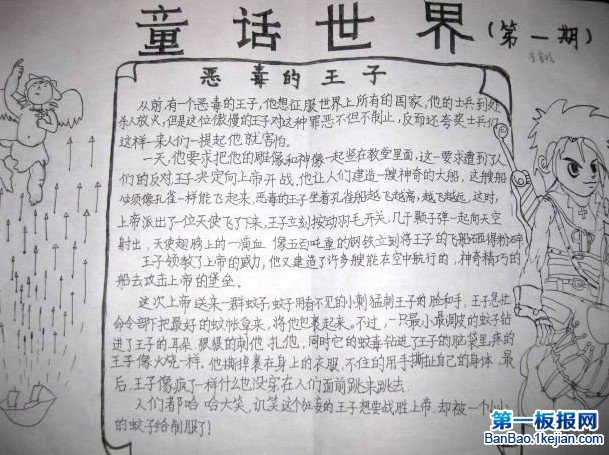 童话世界(第一期)
恶毒的王子
从前,有一个恶毒的王子,他想征服世界上所有的国家,他的士兵到处
杀人放火,但是这位傲慢的王子对这种罪恶不但不制止,反而还夸奖士兵们,
这样一来人们一提起他就害怕。
一天,他要求把他的雕像和神像一起竖在教堂里面,这一要求遭到了人
们的反对,王子决定向上帝开战,他让人们建造一艘神奇的大船,这艘船
必须像孔雀一样能飞起来,恶毒的王子坐着孔雀船越飞越高,越飞越远,这时,
上帝派出了一位天使飞了下来,王子立刻按动羽毛开关,几千颗子弹一起向天空
射出,天使翅膀上的一滴血像五百吨重的钢铁立刻将王子的飞船砸得粉碎
王子领教了上帝的威力,他又建造了许多艘能在空中航行的,神奇精巧的
船去攻击上帝的堡垒。
这次上帝送来一群蚊子,蚊子用看不见的小刺猛刺王子的脸和手,王子急忙
命令部下把最好的蚊帐拿来,将他包裹起来。不过,一只最小最调皮的蚊子钻
进了王子的耳朵,狠狠的刺他,扎他,同时它的蚊毒钻进了王子的脑袋里,疼的
王子像火烧一样。他撕掉裹在身上的衣服,不住的用手撕扯自己的身体,最
后,王子像疯了一样什么也没穿在人们面前跳来跳去
人们都哈哈大笑,讥笑这个狂妄的王子想要战胜上帝,却被一个小小
的蚊子给制服了!
第一板报网
BanBao.1kejian.com